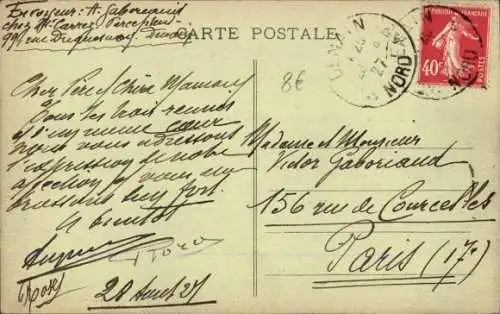 Envoyeur: A. Gaboriaud
chez Mr Carrez Percepteur
99 rue Duquesnoy, Denain
CARTE POSTALE
DENAIN
NORD
27
RÉPUBLIQUE FRANÇAISE
40c
POSTES
8€
Cher Père & Chère Maman,
Tous les trois réunis
d'un même cœur
nous vous adressons
l'expression de notre
affection & vous em
brassons bien fort.
A bientôt
20 Août 27
Madame et Monsieur
Victor Gaboriaud
156 rue de Courcelles
Paris (17e)